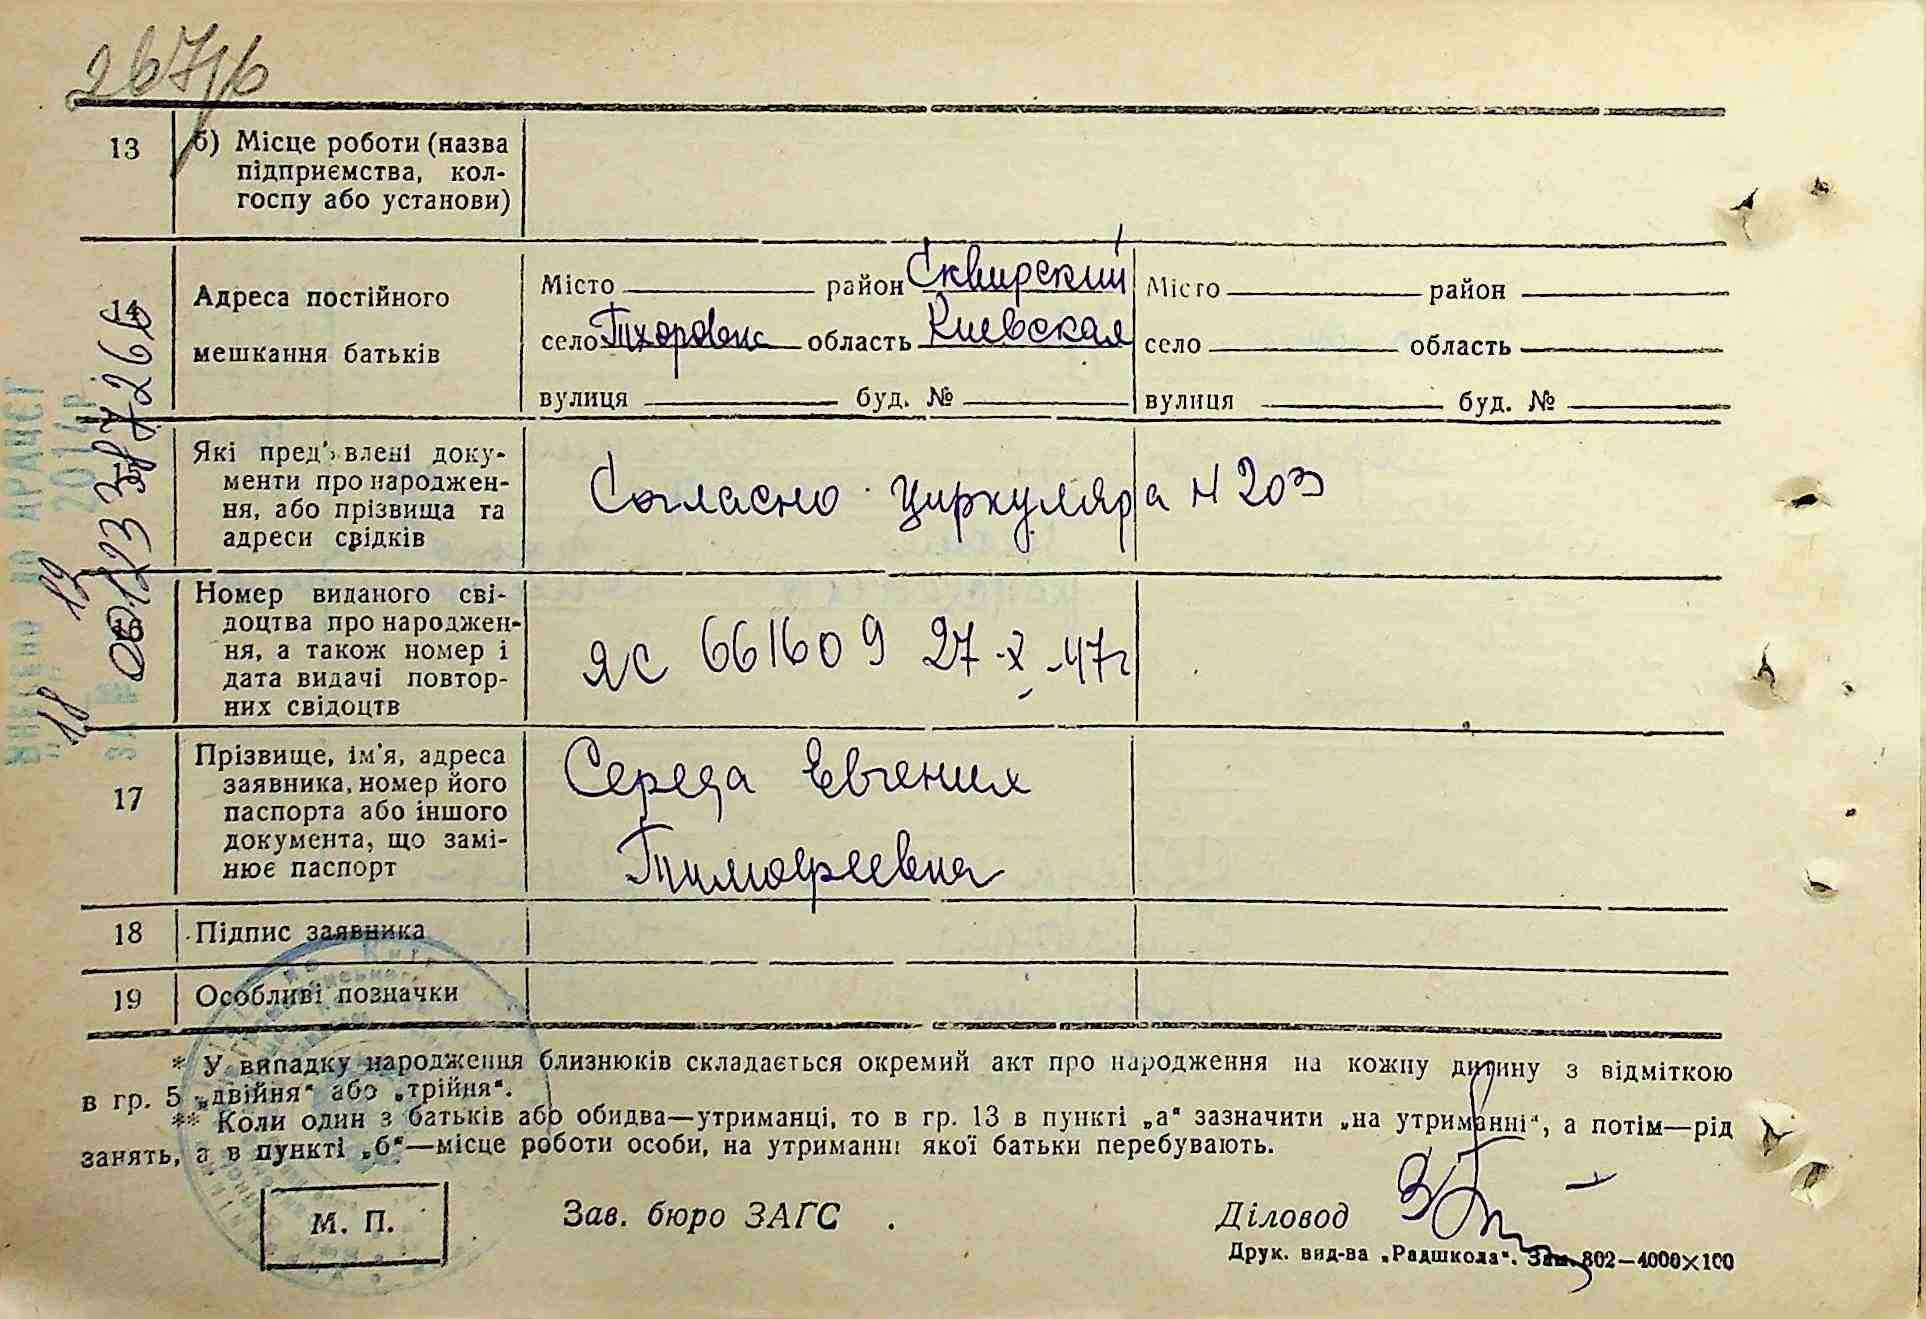 13
б) Місце роботи (назва
підприємства, кол-
госпу або установи)
14
Адреса постійного
мешкання батьків
Місто район Сквирский
село Тхоровка область Киевская
вулиця буд. №
Місто район
село область
вулиця буд. №
Які пред'влені доку-
менти про народжен-
ня, або прізвища та
адреси свідків
Согласно циркуляра № 203
Номер виданого сві-
доцтва про народжен-
ня, а також номер і
дата видачі повтор-
них свідоцтв
ЯС 661609 27-X-47г
17
Прізвище, ім'я, адреса
заявника, номер його
паспорта або іншого
документа, що замі-
нює паспорт
Середа Евгения
Тимофеевна
18
Підпис заявника
19
Особливі позначки
* У випадку народження близнюків складається окремий акт про народження на кожну дитину з відміткою
в гр. 5 „двійня“ або „трійня“.
** Коли один з батьків або обидва—утриманці, то в гр. 13 в пункті „а“ зазначити „на утриманні“, а потім—рід
занять, а в пункті „б“—місце роботи особи, на утриманні якої батьки перебувають.
М. П.
Зав. бюро ЗАГС
Діловод
Друк. вид-ва „Радшкола“. Зам. 802—4000×100